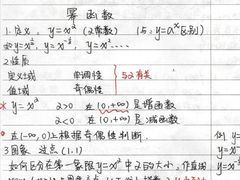 幂函数
1.定义 y=x^α (α常数) (与y=a^x区别)
如y=x^½, y=x^-½, y=x²....
2.性质
定义域 单调性 与α有关
值域 奇偶性
* y=x^α α>0 在[0,+∞)是增函数
α<0 在(0,+∞)是减函数
* 在(-∞,0)上根据奇偶性判断. 例 y=
3.图象 过点(1,1) y=
如何区分在第一象限y=x^α中α的大小,作直线